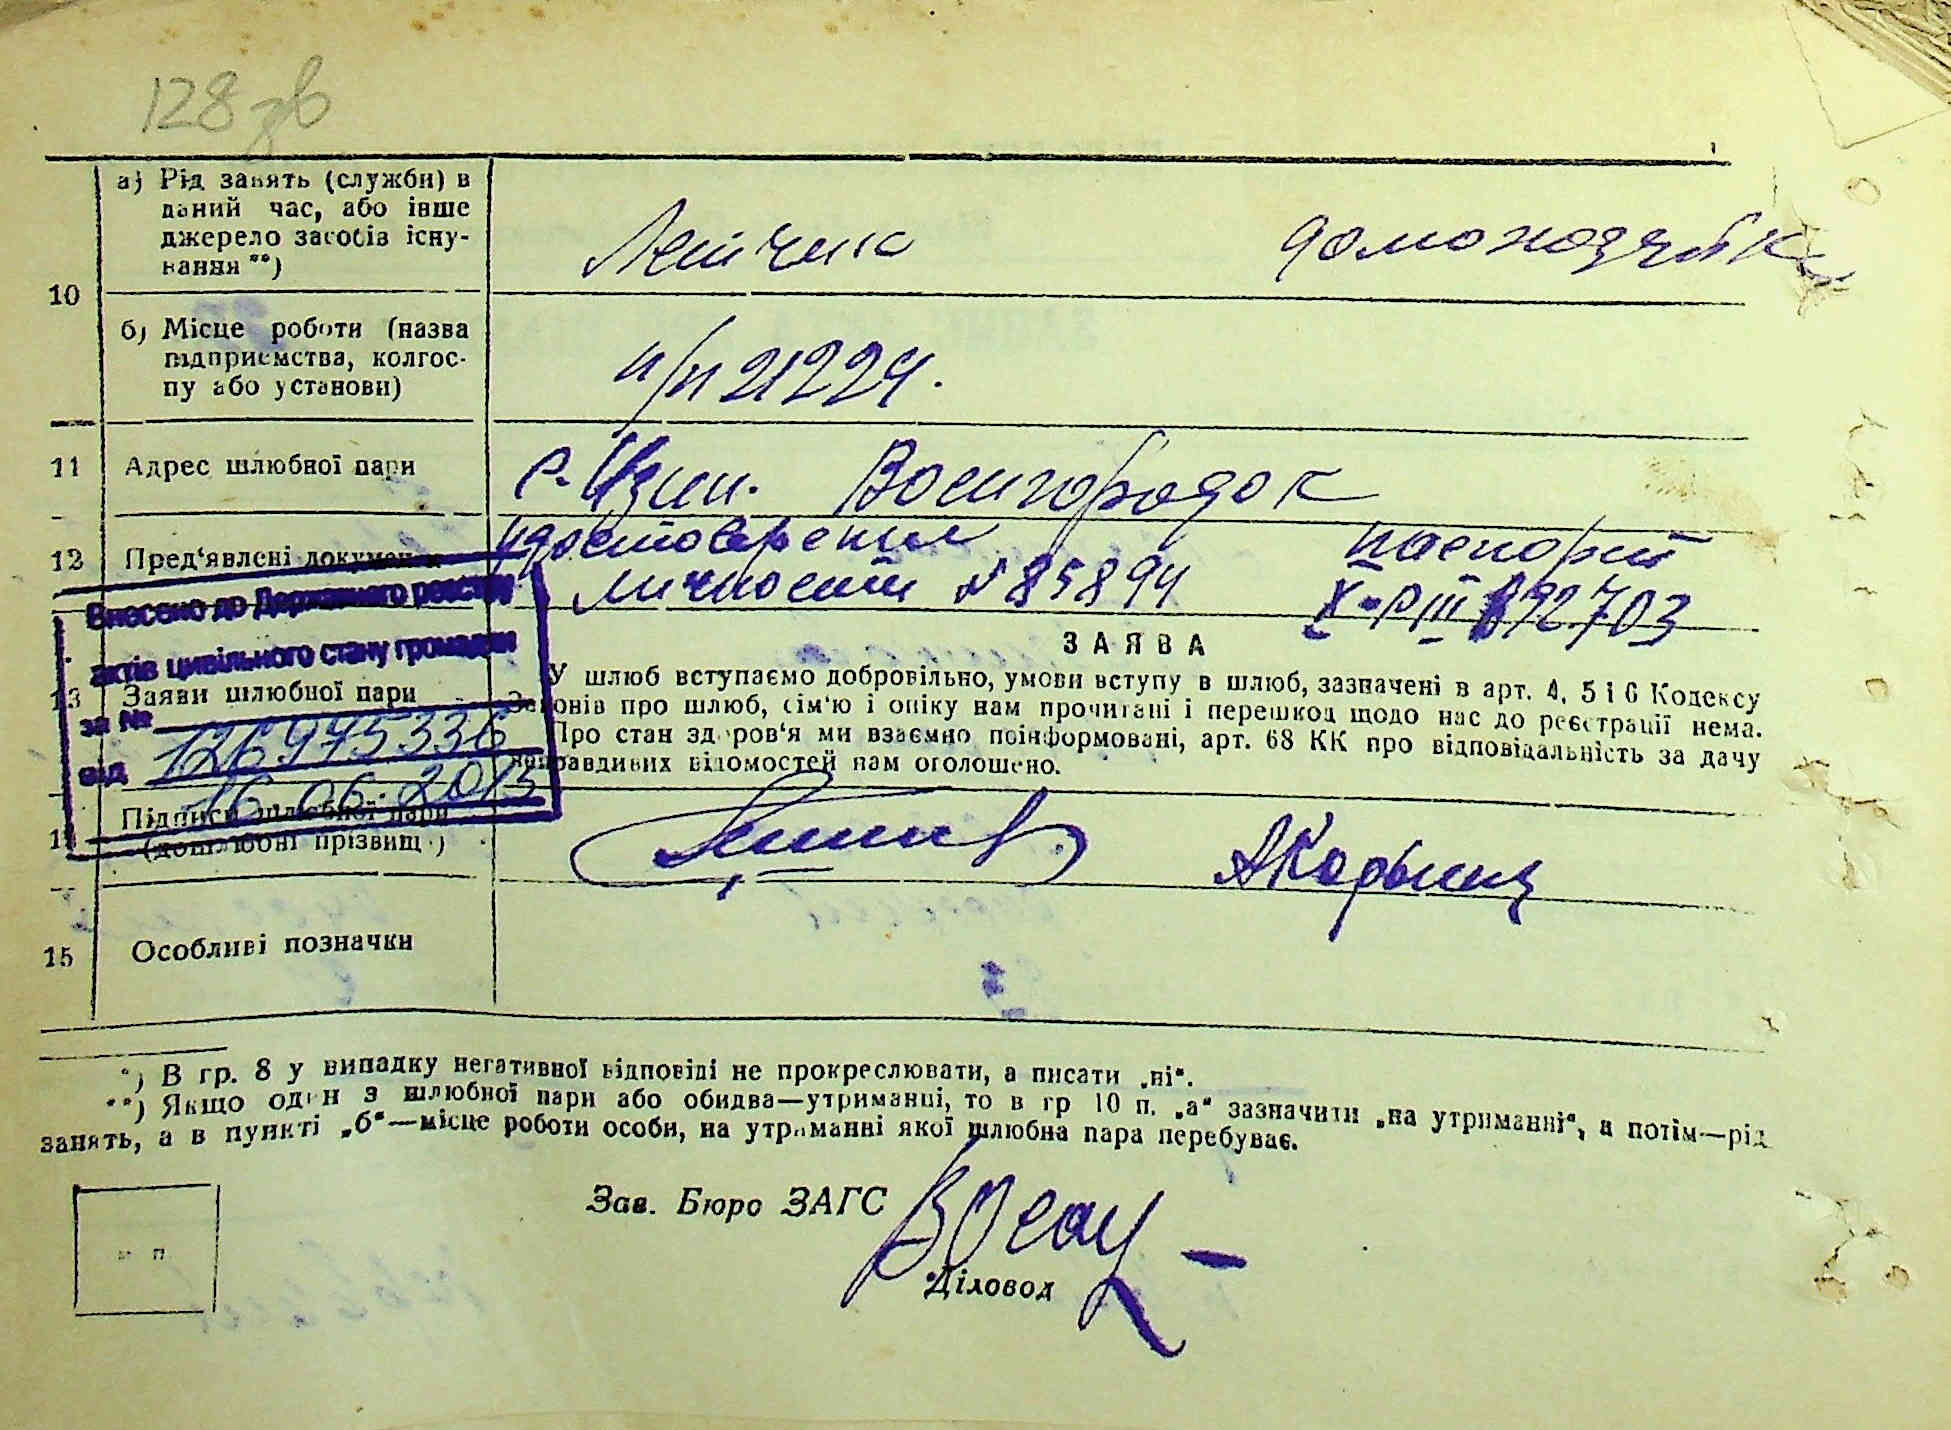 128 зв
10
а) Рід занять (служби) в
даний час, або інше
джерело засобів існу-
вання **)
Летчик
домохозяйк
б) Місце роботи (назва
підприємства, колгос-
пу або установи)
п/п 21224.
11 Адрес шлюбної пари
с. Узин. Военгородок
12 Пред'явлені документи
удостоверение
личности № 85894
паспорт
X-РШ № 692703
Внесено до Державного реєстру
актів цивільного стану громадян
за № 126975336
від 16.06.2013
13 Заяви шлюбної пари
ЗАЯВА
У шлюб вступаємо добровільно, умови вступу в шлюб, зазначені в арт. 4, 5 і 6 Кодексу
Законів про шлюб, сім'ю і опіку нам прочитані і перешкод щодо нас до реєстрації нема.
Про стан здоров'я ми взаємно поінформовані, арт. 68 КК про відповідальність за дачу
неправдивих відомостей нам оголошено.
14 Підписи шлюбної пари
(дошлюбні прізвищ.)
15 Особливі позначки
*) В гр. 8 у випадку негативної відповіді не прокреслювати, а писати „ні“.
**) Якщо один з шлюбної пари або обидва—утриманці, то в гр 10 п. „а“ зазначити „на утриманні“, а потім—рід
занять, а в пункті „б“—місце роботи особи, на утриманні якої шлюбна пара перебуває.
Зав. Бюро ЗАГС
Діловод
м п